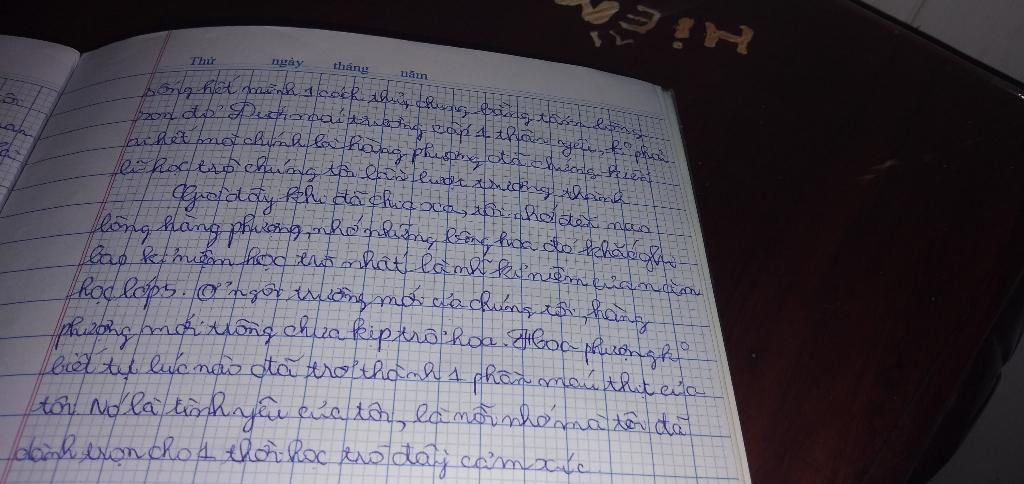 HIẾU
Thứ ngày tháng năm
sống hết mình 1 cách thủy chung bằng tấm lòng
son đỏ. Dưới mái trường cấp 1 thân yêu, kỉ
nhất mà chính là hàng phượng đã chứng kiến
lũ học trò chúng tôi lần lượt trưởng thành
Giờ đây khi đã chia xa, tôi nhớ da
lòng hàng phượng, nhớ những bông hoa đỏ khắc ghi
bao kỉ niệm học trò nhất là những kỉ niệm của năm
học lớp 5. Ở ngôi trường mới của chúng tôi, hàng
phượng mới trồng chưa kịp trổ hoa. Hoa phượng k°
biết tự lúc nào đã trở thành 1 phần máu thịt của
tôi. Nó là tình yêu của tôi, là nỗi nhớ mà tôi đã
dành trọn cho 1 thời học trò đầy cảm xúc